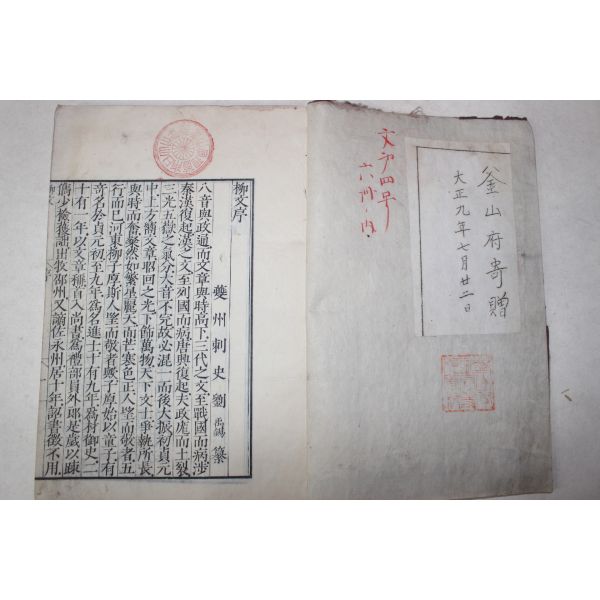 釜山府寄贈
大正九年七月廿二日
文第四号
六冊ノ内
柳文序
夔州刺史劉禹錫纂
八音與政通而文章與時高下三代之文至戰國而病涉
秦漢復起漢之文至列國而病唐興復起夫政厖而土裂
三光五嶽之氣分大音不完故必混一而後大振初貞元
中上方嚮文章昭回之光下飾萬物天下文士爭執所長
與時而奮粲然如繁星麗天而芒寒色正人望而敬者五
行而已河東柳子厚斯人望而敬者歟子厚始以童子有
奇名於貞元初至九年爲名進士十有九年爲材御史二
十有一年以文章稱首入尚書爲禮部員外郎是歲以疎
雋少檢獲訕出牧邵州又謫佐永州居十年詔書徵不用